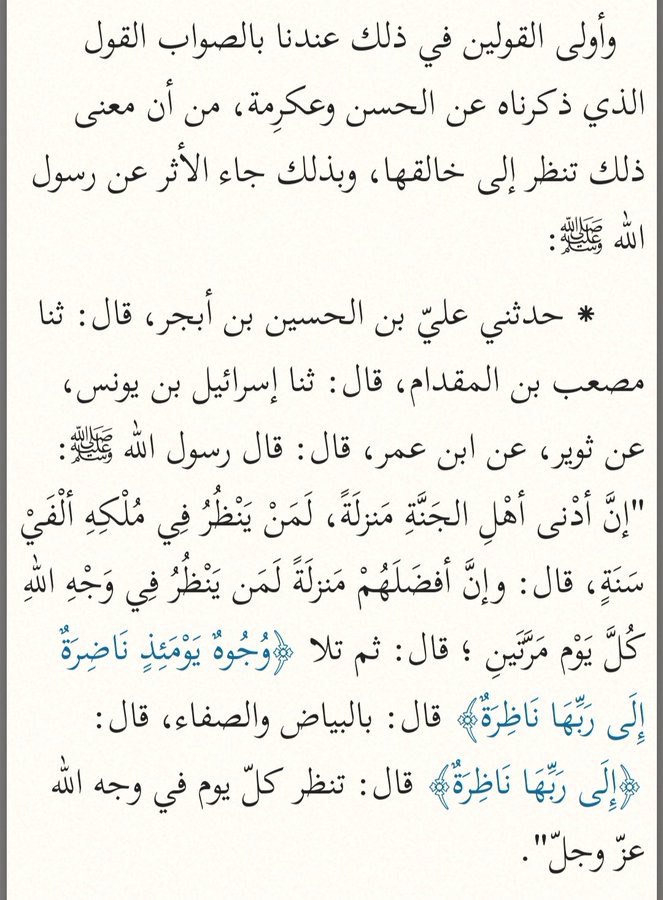 وأولى القولين في ذلك عندنا بالصواب القول
الذي ذكرناه عن الحسن وعكرِمة، من أن معنى
ذلك تنظر إلى خالقها، وبذلك جاء الأثر عن رسول
الله ﷺ:
* حدثني عليّ بن الحسين بن أبجر، قال: ثنا
مصعب بن المقدام، قال: ثنا إسرائيل بن يونس،
عن ثوير، عن ابن عمر، قال: قال رسول الله ﷺ:
"إنَّ أدْنى أهْلِ الجَنَّةِ مَنزلَةً، لَمَنْ يَنْظُرُ فِي مُلْكِهِ ألْفَيْ
سَنَةٍ، قال: وإنَّ أفضَلَهُمْ مَنزلَةً لَمَن يَنْظُرُ فِي وَجْهِ اللهِ
كُلَّ يَوْم مَرَّتَينِ ؛ قال: ثم تلا ﴿وُجُوهٌ يَوْمَئِذٍ نَاضِرَةٌ
إِلَى رَبِّهَا نَاظِرَةٌ﴾ قال: بالبياض والصفاء، قال:
﴿إِلَى رَبِّهَا نَاظِرَةٌ﴾ قال: تنظر كلّ يوم في وجه الله
عزّ وجلّ".